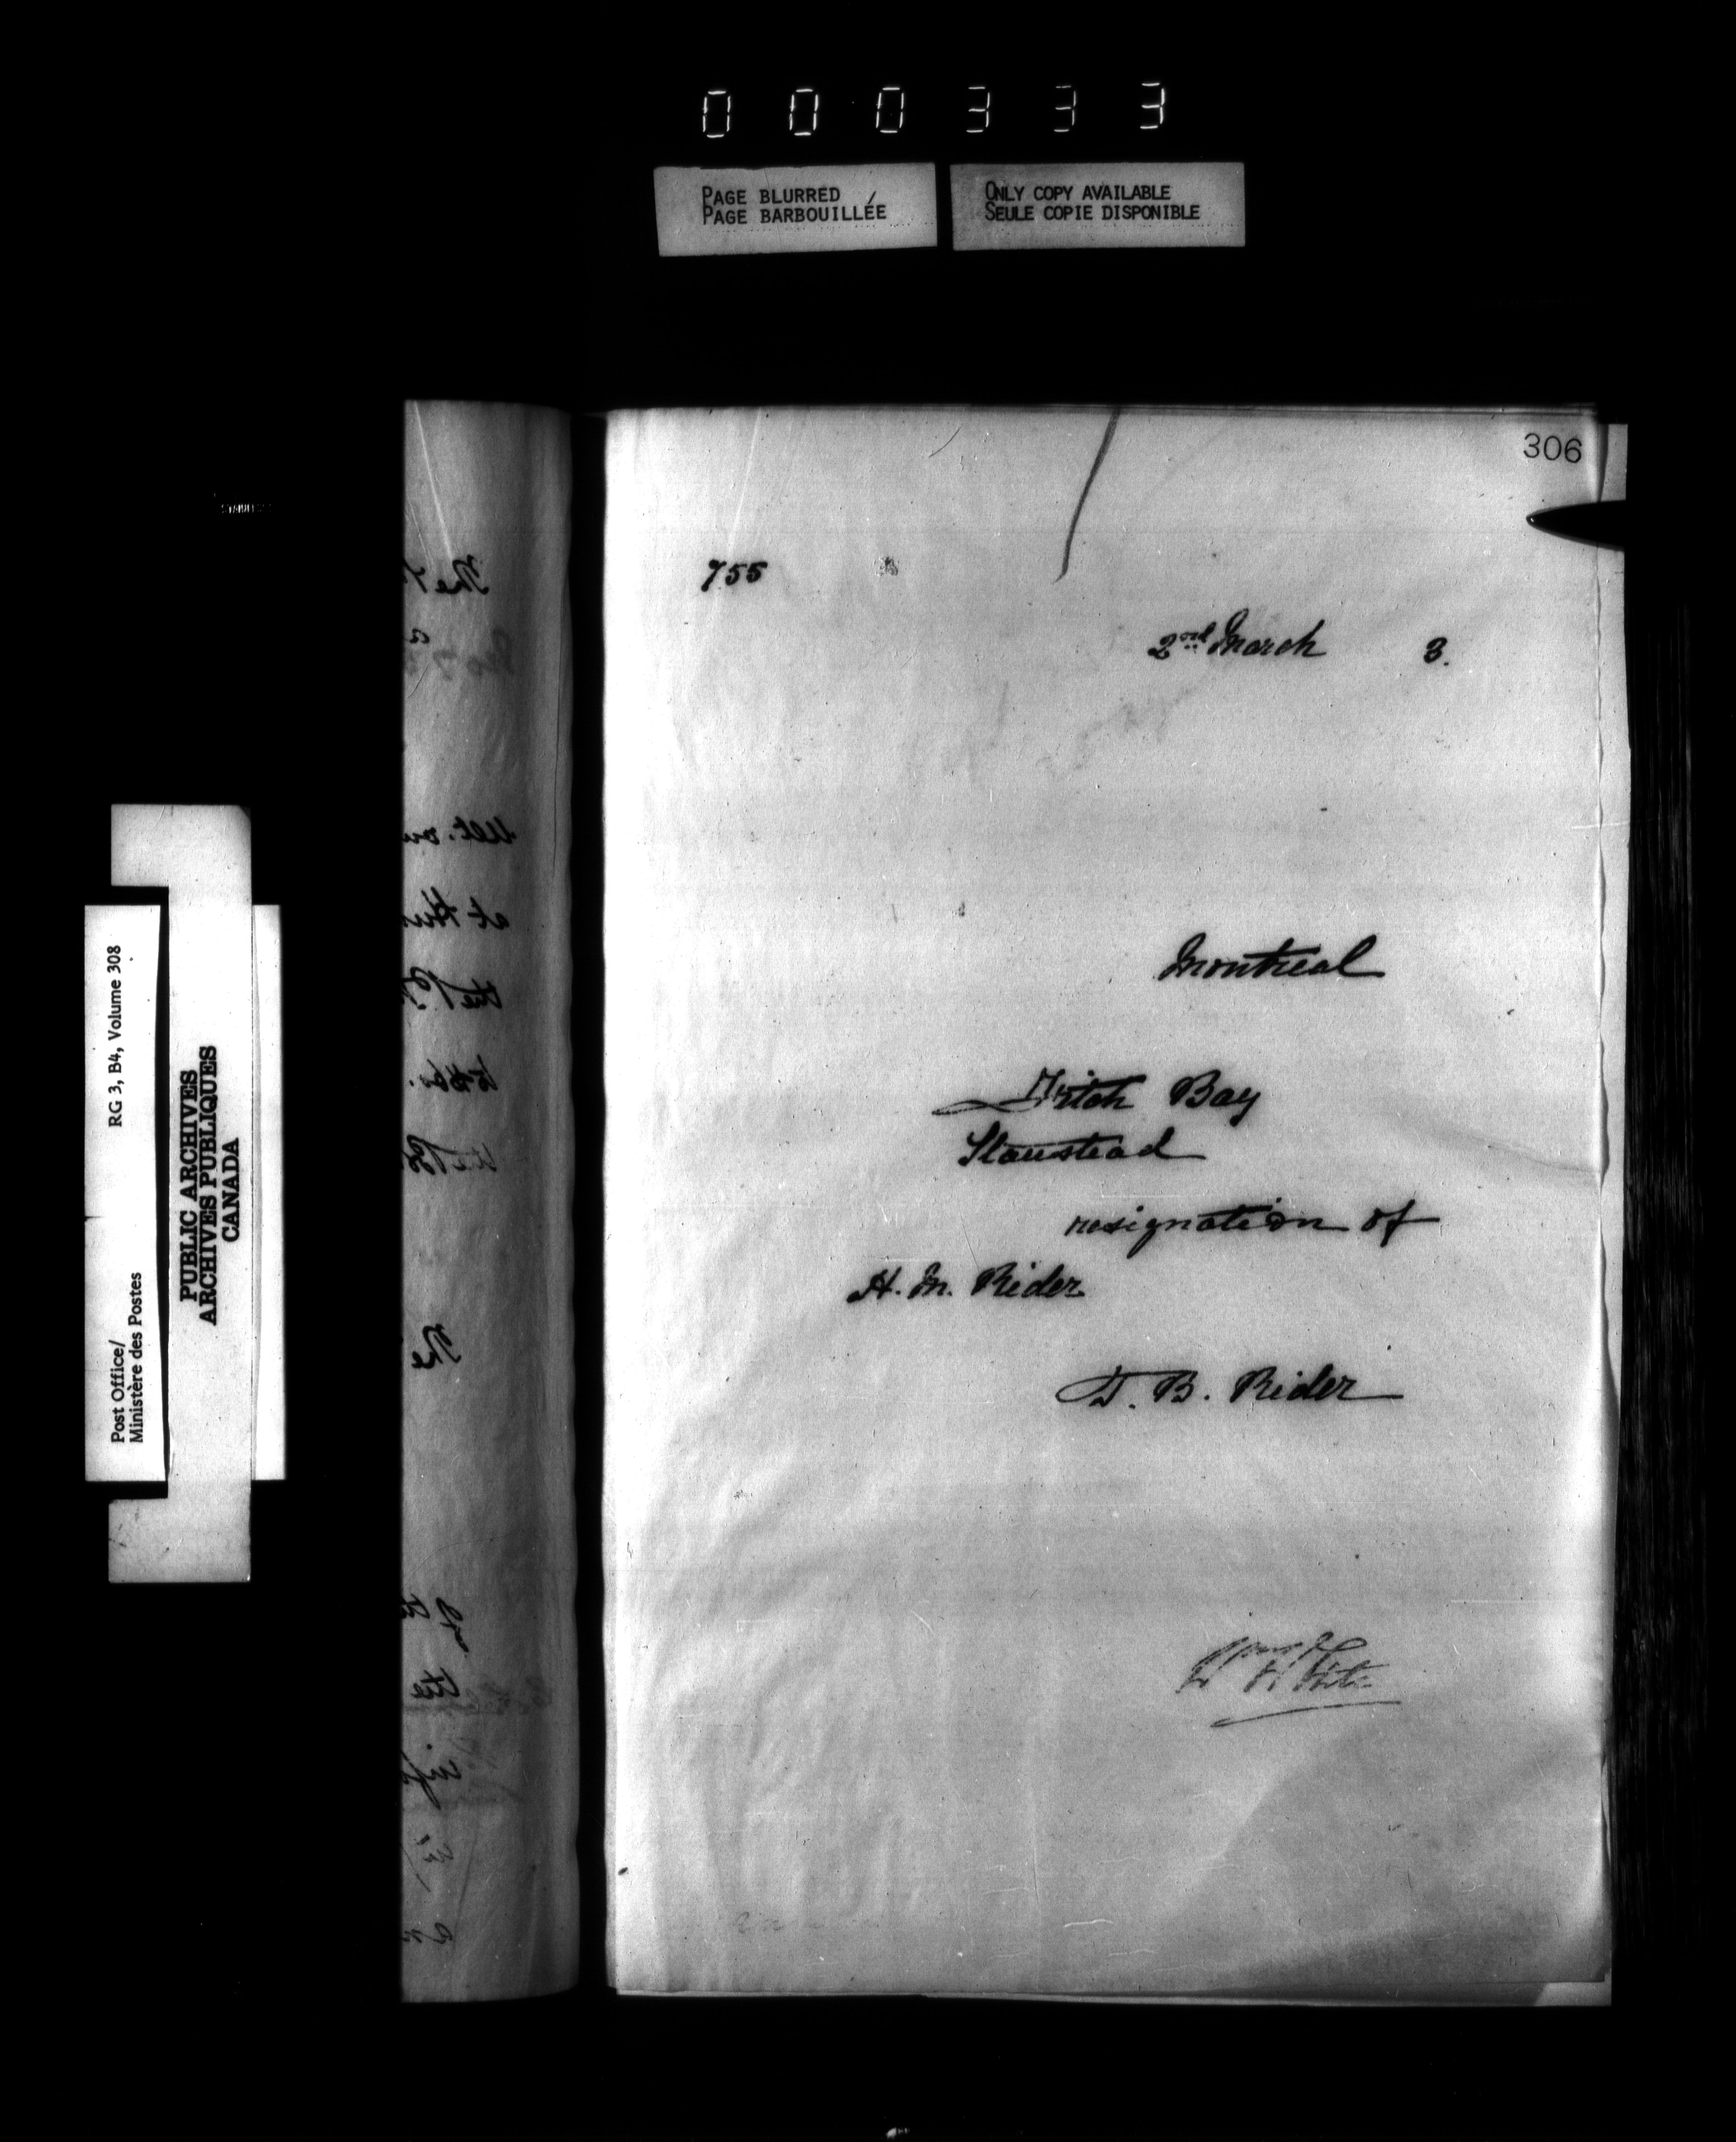 000333
PAGE BLURRED
PAGE BARBOUILLÉE
ONLY COPY AVAILABLE
SEULE COPIE DISPONIBLE
306
755
2nd March 3.
Montreal
Fitch Bay
Stanstead
resignation of
H. M. Rider
T. B. Rider
Wm White
Post Office/
Ministère des Postes
RG 3, B4, Volume 308
PUBLIC ARCHIVES
ARCHIVES PUBLIQUES
CANADA